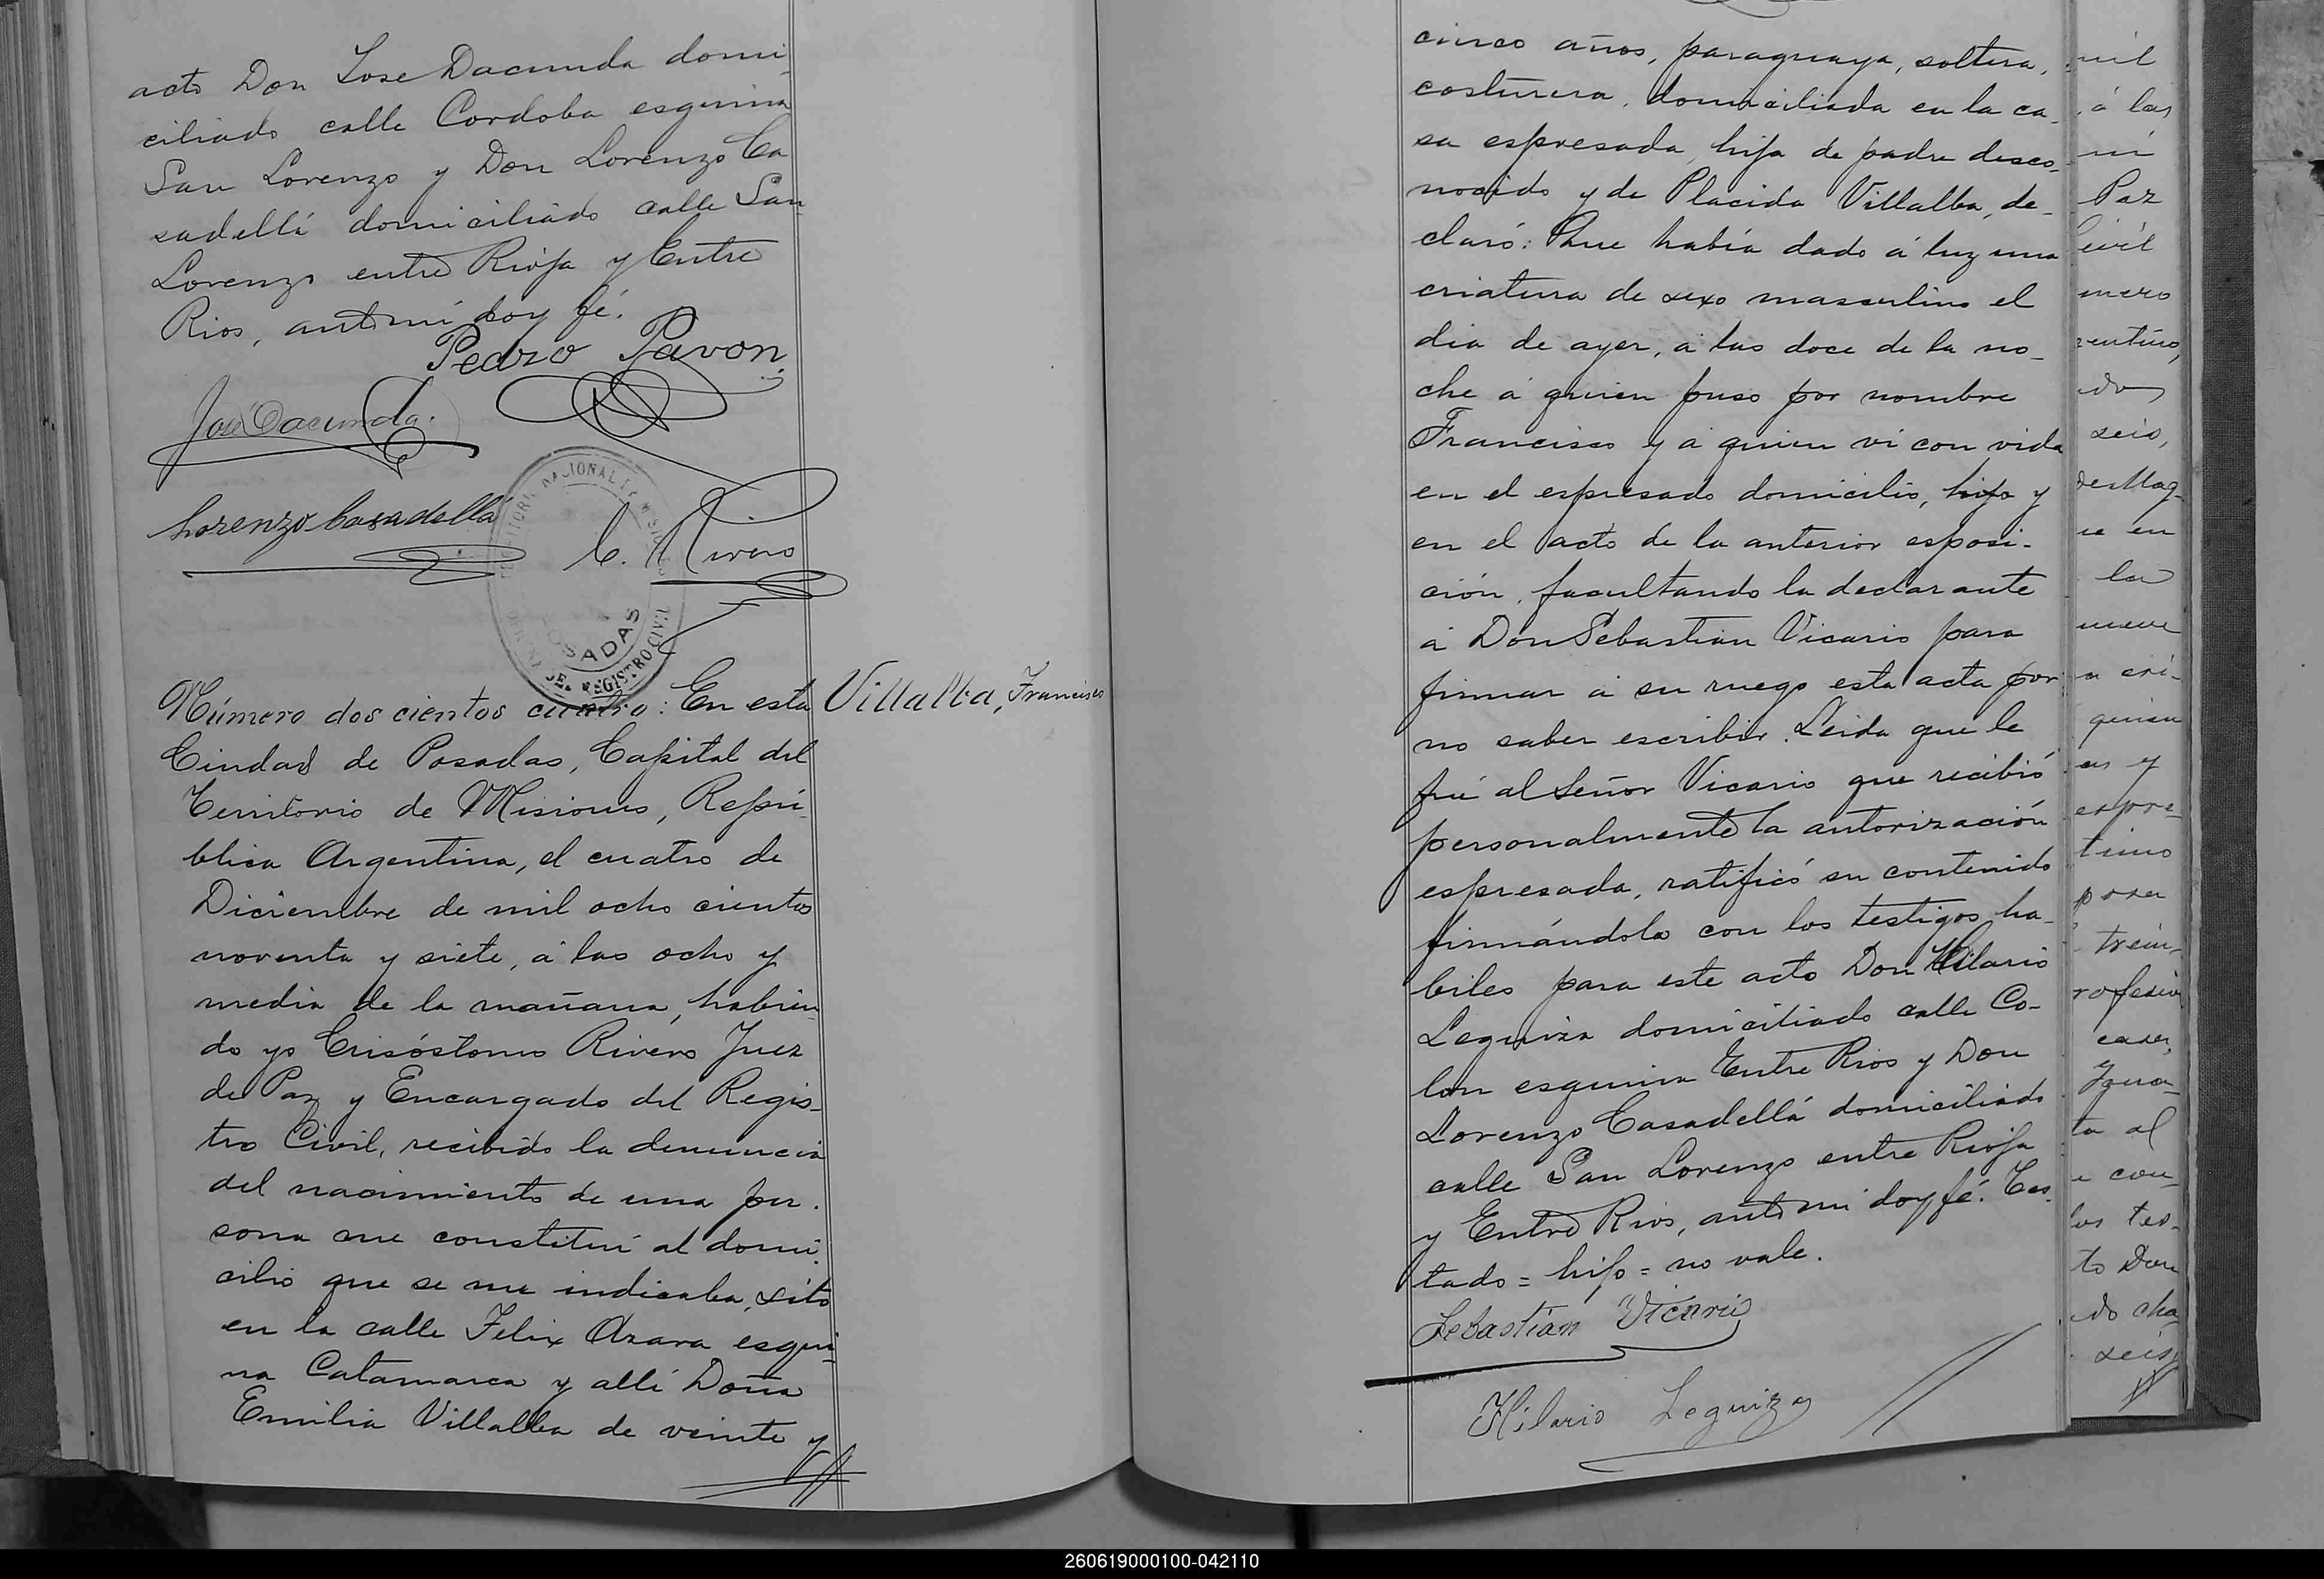 acto Don Jose Dacunda domi-
ciliado calle Cordoba esquina
San Lorenzo y Don Lorenzo Ca
sadellá domiciliado calle San
Lorenzo entre Rioja y Entre
Rios, ante mi doy fé.
Pedro Pavon.
José Dacunda.
Lorenzo Casadellá
C. Rivero
POSADAS
REGISTRO CIVIL
Número dos cientos cuatro: En esta
Villalba, Francisco
Ciudad de Posadas, Capital del
Territorio de Misiones, Repú-
blica Argentina, el cuatro de
Diciembre de mil ocho cientos
noventa y siete, á las ocho y
media de la mañana, habien-
do yo Crisóstomo Rivero Juez
de Paz y Encargado del Regis-
tro Civil, recibido la denuncia
del nacimiento de una per-
sona me constituí al domi-
cilio que se me indicaba, sito
en la calle Felix Azara esqui-
na Catamarca y allí Doña
Emilia Villalba de veinte y
cinco años, paraguaya, soltera,
costurera, domiciliada en la ca-
sa espresada, hija de padre desco-
nocido y de Placida Villalba, de-
claró: Que había dado á luz una
criatura de sexo masculino el
dia de ayer, á las doce de la no-
che á quien puso por nombre
Francisco y á quien vi con vida
en el espresado domicilio, hijo y
en el acto de la anterior esposi-
ción, facultando la declarante
á Don Sebastian Vicario para
firmar á su ruego esta acta por
no saber escribir. Leida que le
fué al Señor Vicario que recibió
personalmente la autorización
espresada, ratificó su contenido
firmándola con los testigos há-
biles para este acto Don Hilario
Leguiza domiciliado calle Co-
lon esquina Entre Rios y Don
Lorenzo Casadellá domiciliado
calle San Lorenzo entre Rioja
y Entre Rios, ante mi doy fé. Tes-
tado = hijo = no vale.
Sebastián Vicario
Hilario Leguiza
mil
á las
mi
Paz
Civil
mero
gentino,
do
seis,
en
la
quien
y
espre-
timo
para
trein-
casa
ta al
con-
los tes-
to Don
seis
260619000100-042110